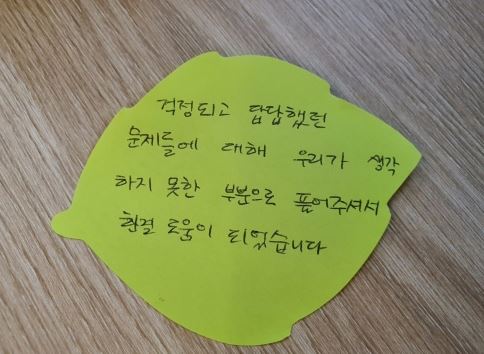 걱정되고 답답했던
문제들에 대해 우리가 생각
하지 못한 부분으로 풀어주셔서
한결 도움이 되었습니다